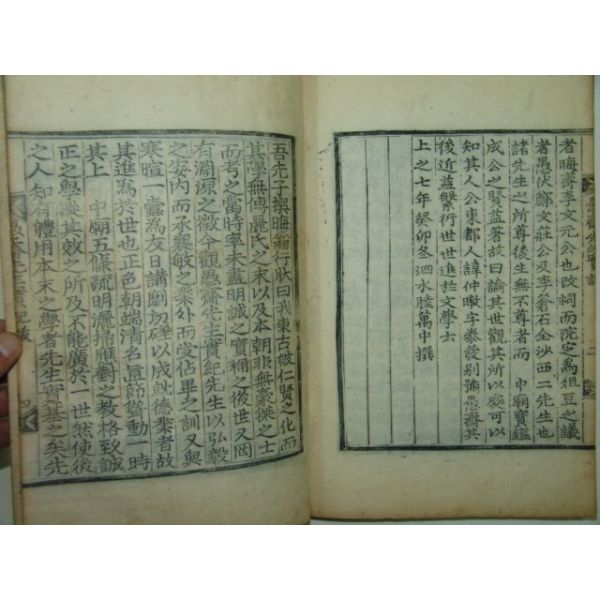 者晦齋李文元公也改祠而院定爲俎豆之議
者愚伏鄭文莊公及李蒼石金沙西二先生也
諸先生之所尊後生無不尊者而 中朝寶鑑
成公之賢蓋著故曰論其世觀其所以處可以
知其人公東都人諱仲暾字泰發別號愚齋其
後近益繁衍世世進於文學士
上之七年癸卯冬泗水睦萬中撰
吾先子撰晦翁行狀曰我東古被仁賢之化而
其學無傳麗氏之末以及本朝非無豪傑之士
而考之當時率未盡明誠之實稱之後世又罔
有淵源之徵今觀愚齋先生實紀先生以弘毅
之安內而承襄敏之業外而受佔畢之訓又與
寒暄一蠹爲友日講劘切磋以成就德業者故
其進爲於世也正色朝端淸名直節聳動一時
其上 中廟五條疏明灑掃應對之敎格致誠
正之學縱其效之所及不能廣於一世然使後
之人知有體用本末之學者先生實基之矣先